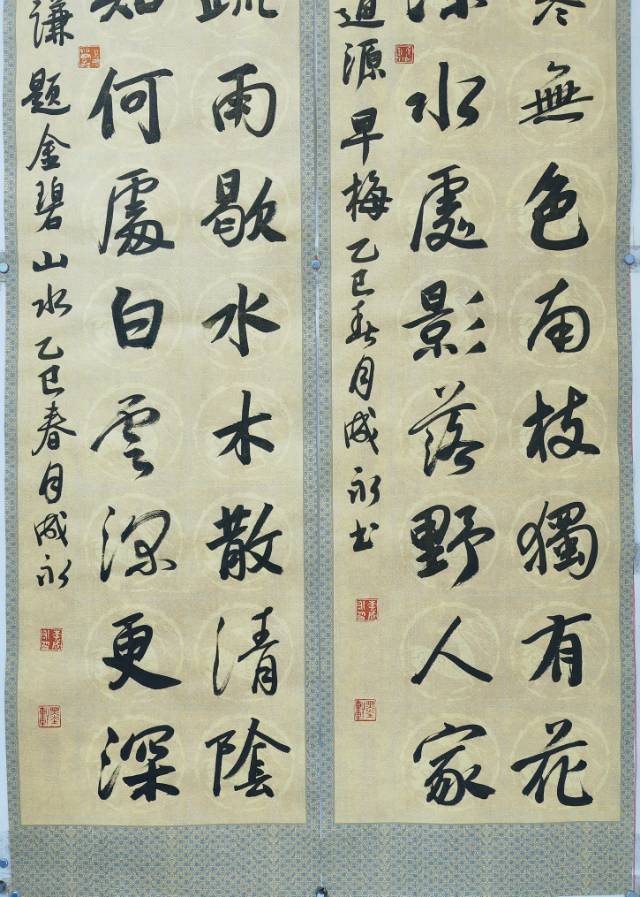 無色南枝獨有花
水處影落野人家
道源早梅乙巳春月成永书
疏雨歇水木散清陰
知何處白雲深更深
謙題金碧山水乙巳春月成永